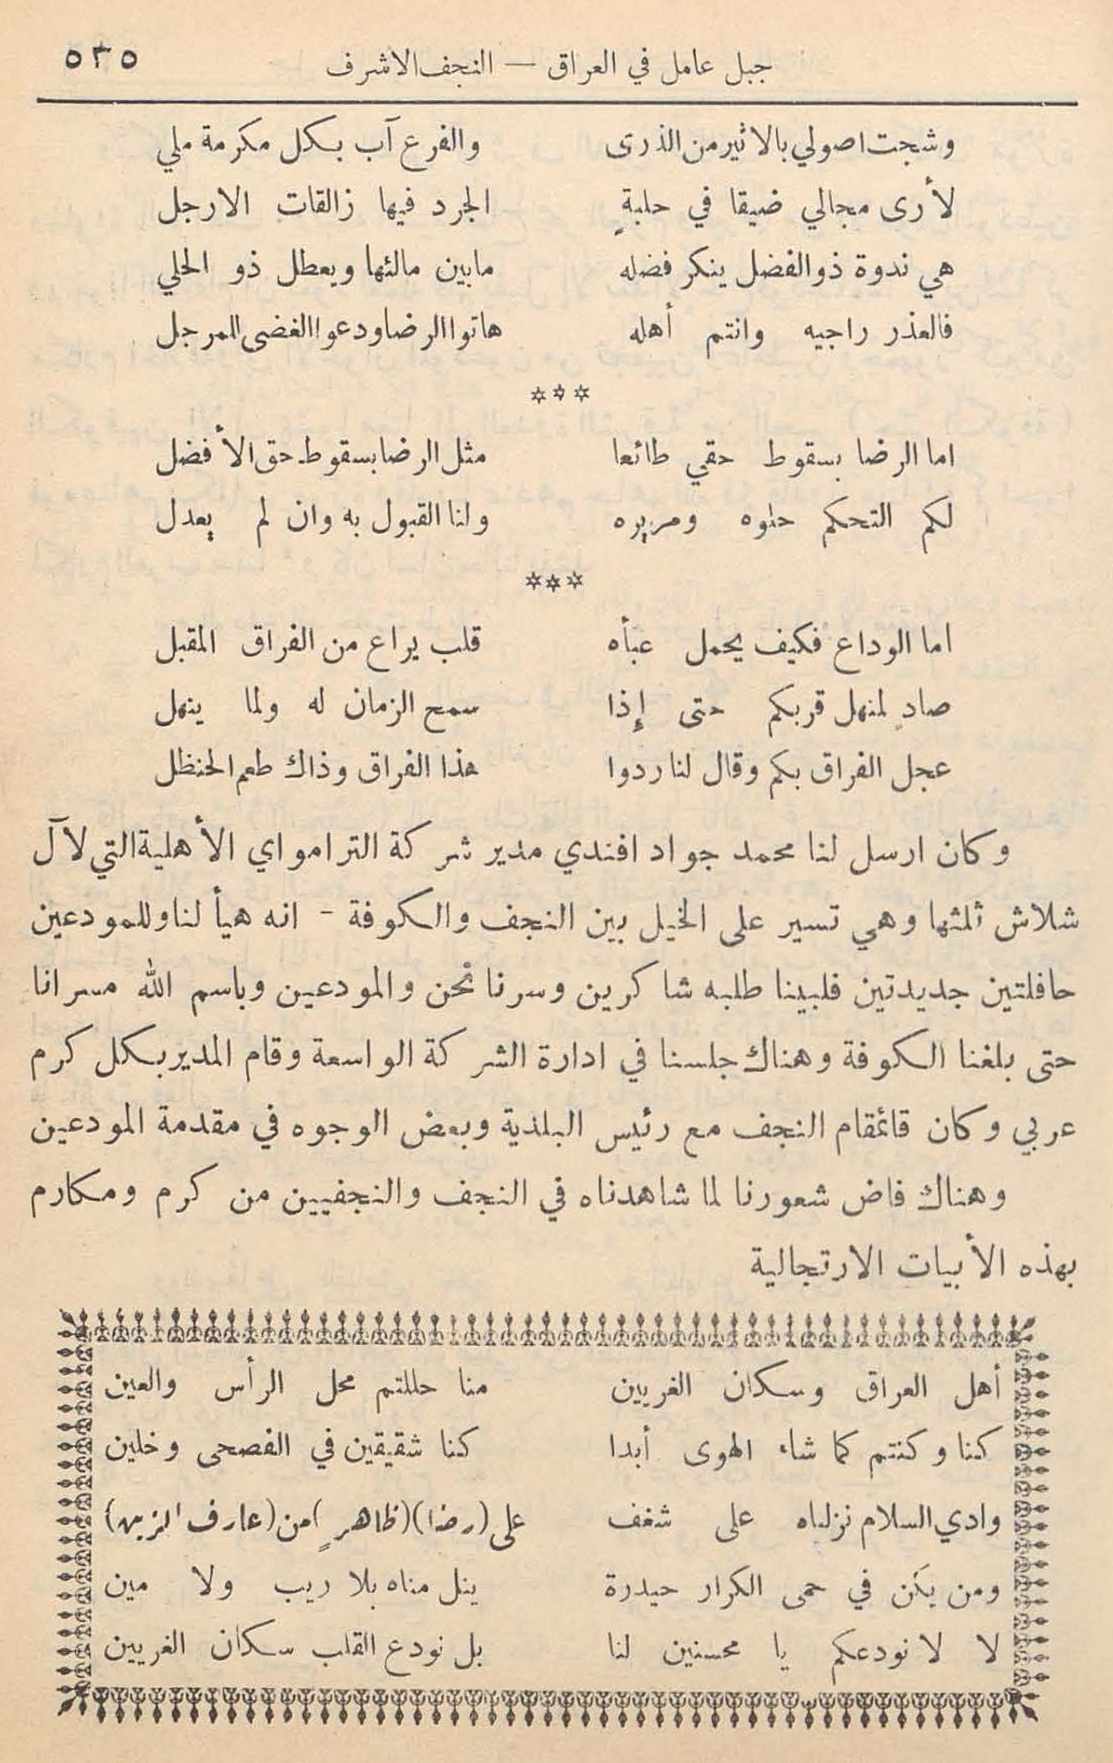 جبل عامل في العراق — النجف الاشرف ٥٣٥
وشجت اصولي بالاثير من الذرى والفرع آب بكل مكرمة ملي
لأرى مجالي ضيقا في حلبةٍ الجرد فيها زالقات الارجل
هي ندوة ذو الفضل ينكر فضله مابين مالئها ويعطل ذو الحلي
فالعذر راجيه وانتم أهله هاتوا الرضا ودعوا الغضى للمرجل
***
اما الرضا بسقوط حقي طائعا مثل الرضا بسقوط حق الأفضل
لكم التحكم حلوه ومريره ولنا القبول به وان لم يعدل
***
اما الوداع فكيف يحمل عبأه قلب يراع من الفراق المقبل
صادٍ لمنهل قربكم حتى إذا سمح الزمان له ولما ينهل
عجل الفراق بكم وقال لنا ردوا هذا الفراق وذاك طعم الحنظل
وكان ارسل لنا محمد جواد افندي مدير شركة الترامواي الأهلية التي لآل
شلاش ثلثها وهي تسير على الخيل بين النجف والكوفة - انه هيأ لنا وللمودعين
حافلتين جديدتين فلبينا طلبه شاكرين وسرنا نحن والمودعين وباسم الله مسرانا
حتى بلغنا الكوفة وهناك جلسنا في ادارة الشركة الواسعة وقام المدير بكل كرم
عربي وكان قائمقام النجف مع رئيس البلدية وبعض الوجوه في مقدمة المودعين
وهناك فاض شعورنا لما شاهدناه في النجف والنجفيين من كرم ومكارم
بهذه الأبيات الارتجالية
أهل العراق وسكان الغريين منا حللتم محل الرأس والعين
كنا وكنتم كما شاء الهوى أبدا كنا شقيقين في الفصحى وخلين
وادي السلام نزلناه على شغف على (رضا) (ظاهرٍ) من (عارف الزين)
ومن يكن في حمى الكرار حيدرة ينل مناه بلا ريب ولا مين
لا لا نودعكم يا محسنين لنا بل نودع القلب سكان الغريين